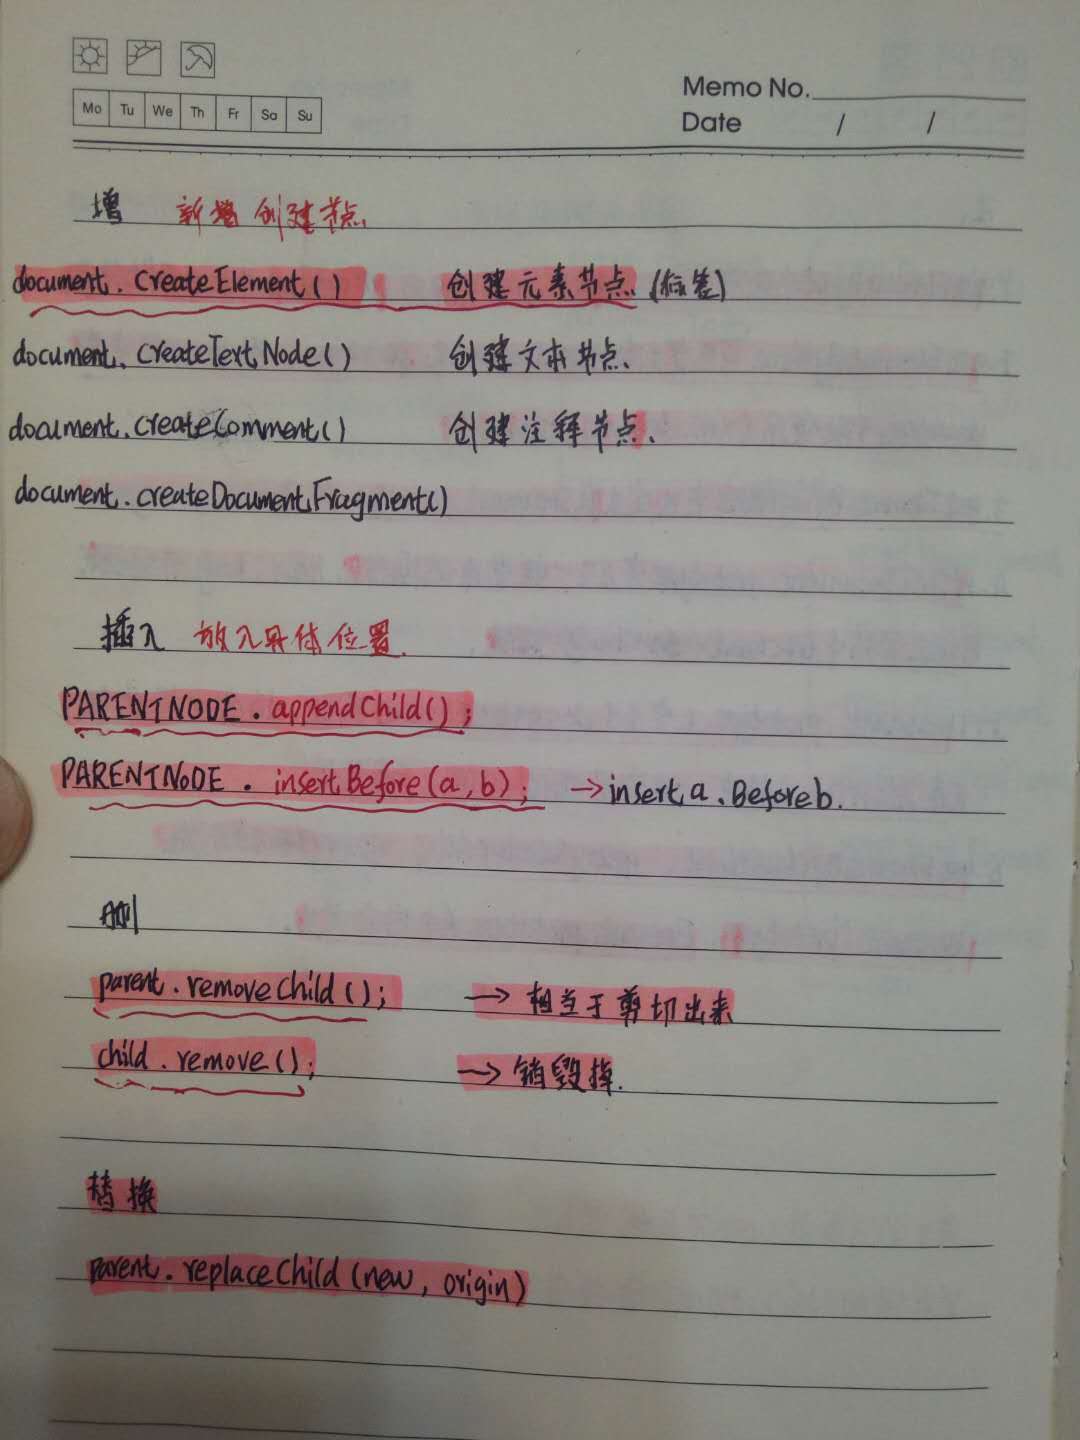 Mo Tu We Th Fr Sa Su
Memo No.
Date / /
增 新增创建节点
document.createElement() 创建元素节点(标签)
document.createTextNode() 创建文本节点.
document.createComment() 创建注释节点.
document.createDocumentFragment()
插入 放入具体位置.
PARENTNODE.appendChild();
PARENTNODE.insertBefore(a,b); →insert a.Before b.
删
parent.removeChild(); → 相当于剪切出来
child.remove(); → 销毁掉.
替换
parent.replaceChild(new, origin)